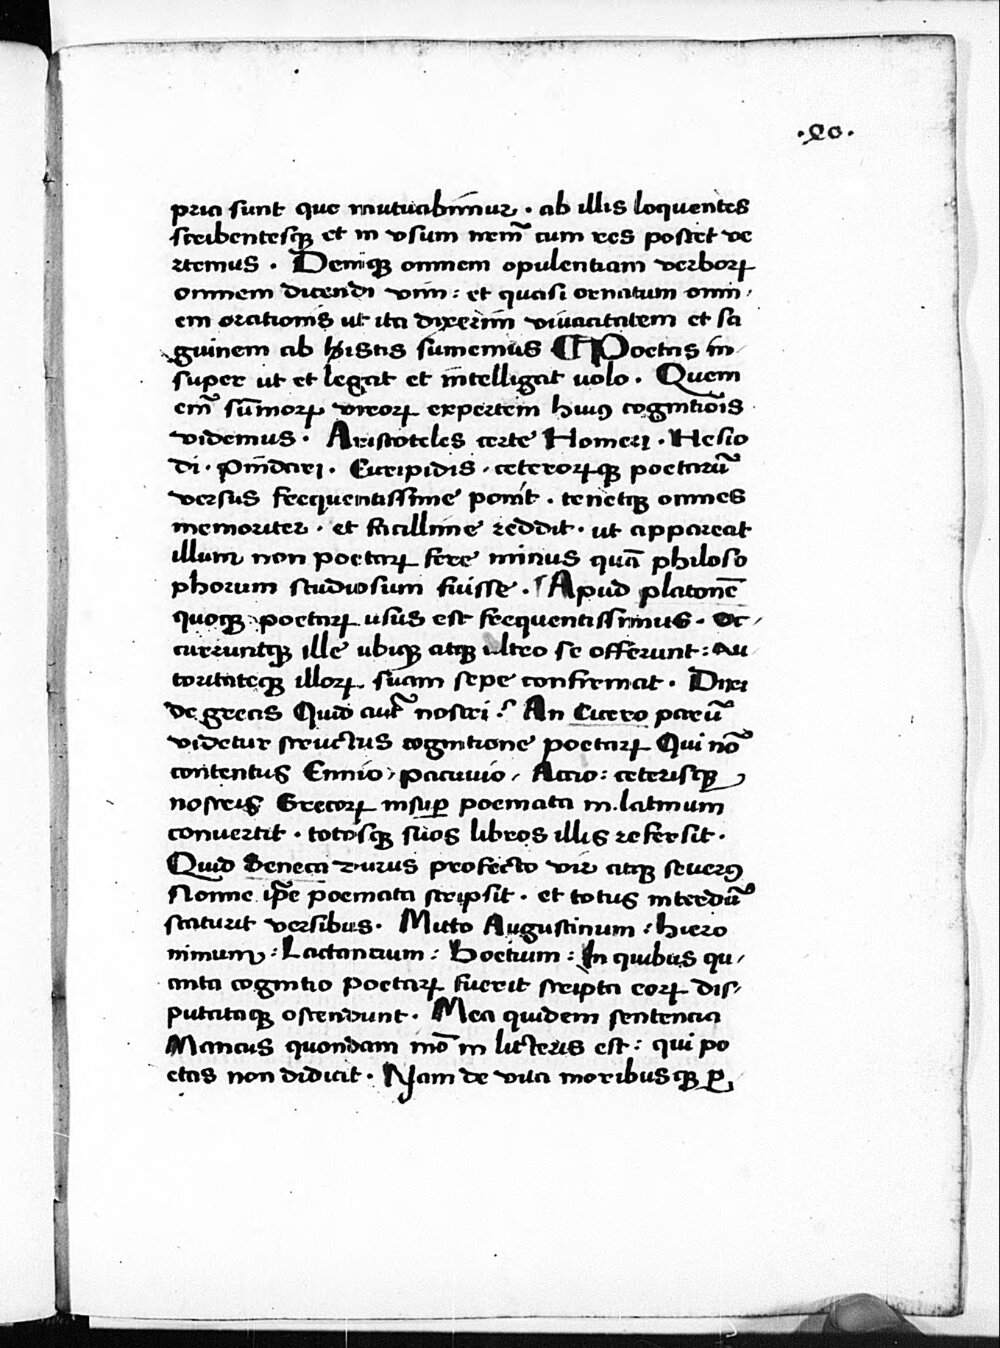 ·20·
pria sunt que mutuabīmur · ab illis loquentes
scribentesqꝫ et in vsum nrm̄ cum res postet ve
rtemus · Deniqꝫ omnem opulentiam verboꝝ
omnem dicendi vim : et quasi ornatum omn⸗
em orationis ut ita dixerim viuacitatem et sa
guinem ab histis sumemus ¶ Poetas in⸗
super ut et legat et intelligat uolo · Quem
em̄ sūmoꝝ viroꝝ expertem huiꝰ cognitōis
videmus · Aristoteles certe Homeri · Hesio
di · Pindari · Euripidis · ceteroꝝqꝫ poetarū
versus frequentissime ponit · tenetqꝫ omnes
memoriter · et facillime reddit · ut appareat
illum non poetaꝝ fere minus quā philoso
phorum studiosum fuisse · Apud platonē
quoqꝫ poetaꝝ usus est frequentissimus · oc⸗
curruntqꝫ ille ubiqꝫ atqꝫ ultro se offerunt : au
toritateqꝫ illoꝝ suam sepe confirmat · Dixi
de grecis Quid aut̄ nostri ? An Cicero parū
videtur structus cognitione poetaꝝ Qui nō
contentus Ennio , pacuuio , Accio : ceterisqꝫ
nostris Grecoꝝ insuꝑ poemata in latinum
conuertit · totosqꝫ suos libros illis refersit ·
Quid Seneca rurus profecto vir atqꝫ seuerꝰ
Nonne ip̄e poemata scripsit · et totus interdū
scaturit versibus · Mitto Augustinum : hiero
nimum : Lactancium : Boetium : In quibus qu⸗
anta cognitio poetaꝝ fuerit scripta eoꝝ dis⸗
putataqꝫ ostendunt · Mea quidem sentencia
Mancus quondam mō in litteris est : qui po
etas non didicit · Nam de vita moribusqꝫ ꝑ